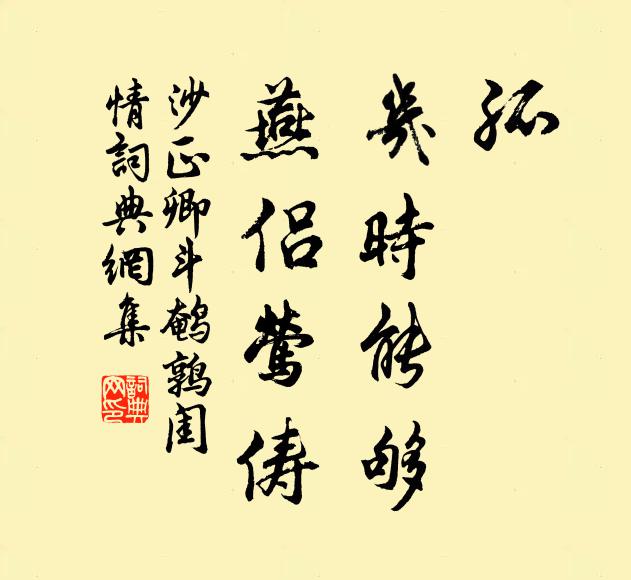 孤
幾時能够
燕侣鶯儔
沙正卿斗鹌鹑闺
情詞典網集
詞典
网印